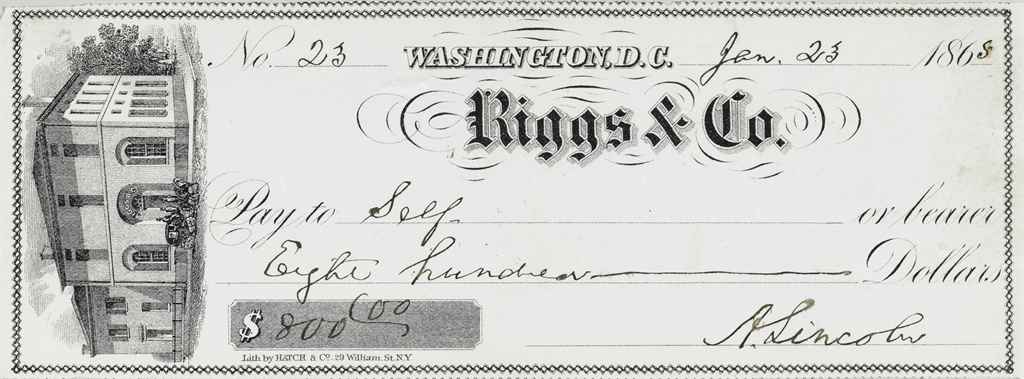 No. 23 WASHINGTON, D.C. Jan. 23 1863
Riggs & Co.
Pay to Self or bearer
Eight hundred Dollars
$ 800 00
A. Lincoln
Lith by HATCH & Co. 29 William. St. N.Y